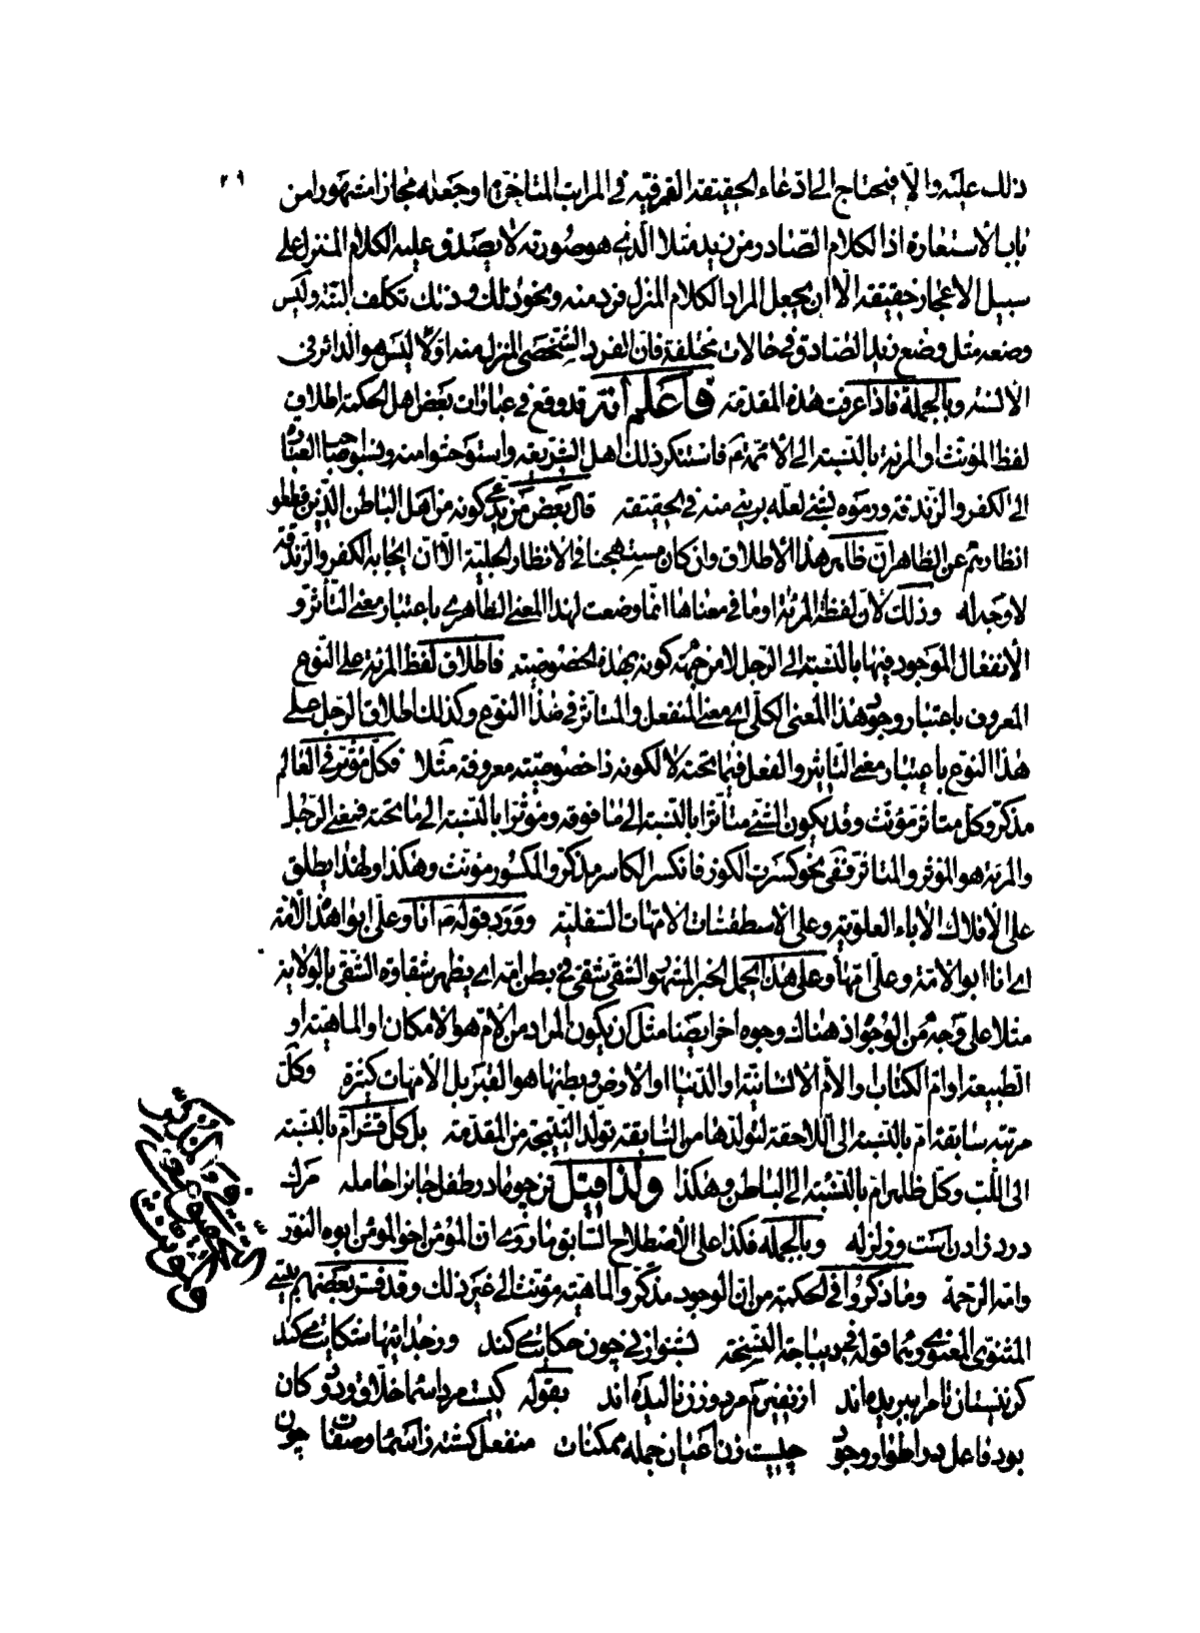 ٢٩
ذلك عليه والا فيحتاج الى ادعاء الحقيقة العرفية في المراتب المتاخرة او جعله مجازا مشهورا من
باب الاستعارة اذ الكلام الصادر من زيد مثلا الذي هو صورته لا يصدق عليه الكلام المنزل على
سبيل الاعجاز حقيقة الا ان يجعل المراد الكلام المنزل فرد منه ونحو ذلك وذلك تكلف البتة وليس
وضعه مثل وضع زيد الصادق في حالات مختلفة فان الفرد الشخصي المنزل منه اولا ليس هو الدائر في
الالسنة وبالجملة فاذا عرفت هذه المقدمة فاعلم انه قد وقع في عبارات بعض اهل الحكمة اطلاق
لفظ المؤنث او المرئة بالنسبة الى الائمة فاستنكر ذلك اهل الشريعة واستوحشوا منه ونسبوا صاحب العبارة
الى الكفر والزندقة ورموه بشئ لعله برئ منه في الحقيقة قال بعض من يدعى كونه من اهل الباطن الذين قطعوا
انظارهم عن الظاهر ان ظاهر هذا الاطلاق وان كان مستهجنا في الانظار الجلية الا ان ايجابه الكفر والزندقة
لا وجه له وذلك لان لفظة المرئة او ما في معناها انما وضعت لهذا المعنى الظاهري باعتبار معنى التأثر و
الانفعال الموجود فيها بالنسبة الى الرجل لا من جهة كونه بهذه الخصوصية فاطلاق لفظ المرئة على النوع
المعروف باعتبار وجود هذا المعنى الكلي اي معنى المنفعل والمتأثر في هذا النوع وكذلك اطلاق الرجل على
هذا النوع باعتبار معنى التأثير والفعل فيما تحته لا لكونه ذا خصوصية معروفة مثلا فكل مؤثر في العالم
مذكر وكل متأثر مؤنث وقد يكون الشئ متأثرا بالنسبة الى ما فوقه ومؤثرا بالنسبة الى ما تحته فمعنى الرجل
والمرئة هو المؤثر والمتأثر ففي نحو كسرت الكوز فانكسر الكاسر مذكر والمكسور مؤنث وهكذا ولهذا يطلق
على الافلاك الاباء العلوية وعلى الاسطقسات الامهات السفلية وورد قوله ص انا وعلي ابوا هذه الامة
اي انا ابو الامة وعلي امها وعلى هذا يحمل الخبر المشهور الشقي شقي في بطن امه اي يظهر شقاوة الشقي بالولاية
مثلا على وجه من الوجوه اذ هناك وجوه اخر ايضا مثل ان يكون المراد من الام هو الامكان او الماهية او
الطبيعة او ام الكتاب والام الانسانية او الدنيا او الارض وبطنها هو القبر بل الامهات كثيرة وكل
مرتبة سابقة ام بالنسبة الى اللاحقة لتولدها من السابقة تولد النتيجة من المقدمة بل كل قشر ام بالنسبة
الى اللب وكل ظاهر ام بالنسبة الى الباطن وهكذا ولذا قيل تن چو مادر طفل جانرا حامله مرك
درد زادن است وزلزله وبالجملة فكذا على الاصطلاح السابق ما روي ان المؤمن اخو المؤمن ابوه النور
وامه الرحمة وما ذكروا في الحكمة من ان الوجود مذكر والماهية مؤنث الى غير ذلك وقد فسر بعضهم بيتي
المثنوي المعنوي وهما قوله في ديباجة النسخة بشنو از ني چون حكايت مي كند وز جدائيها شكايت مي كند
كز نيستان تا مرا ببريده اند از نفيرم مرد وزن ناليده اند بقوله كيست مرد اسما خلاق ودود كان
بود فاعل در اطوار وجود چيست زن اعيان جمله ممكنات منفعل كشته ز اسما وصفات چون